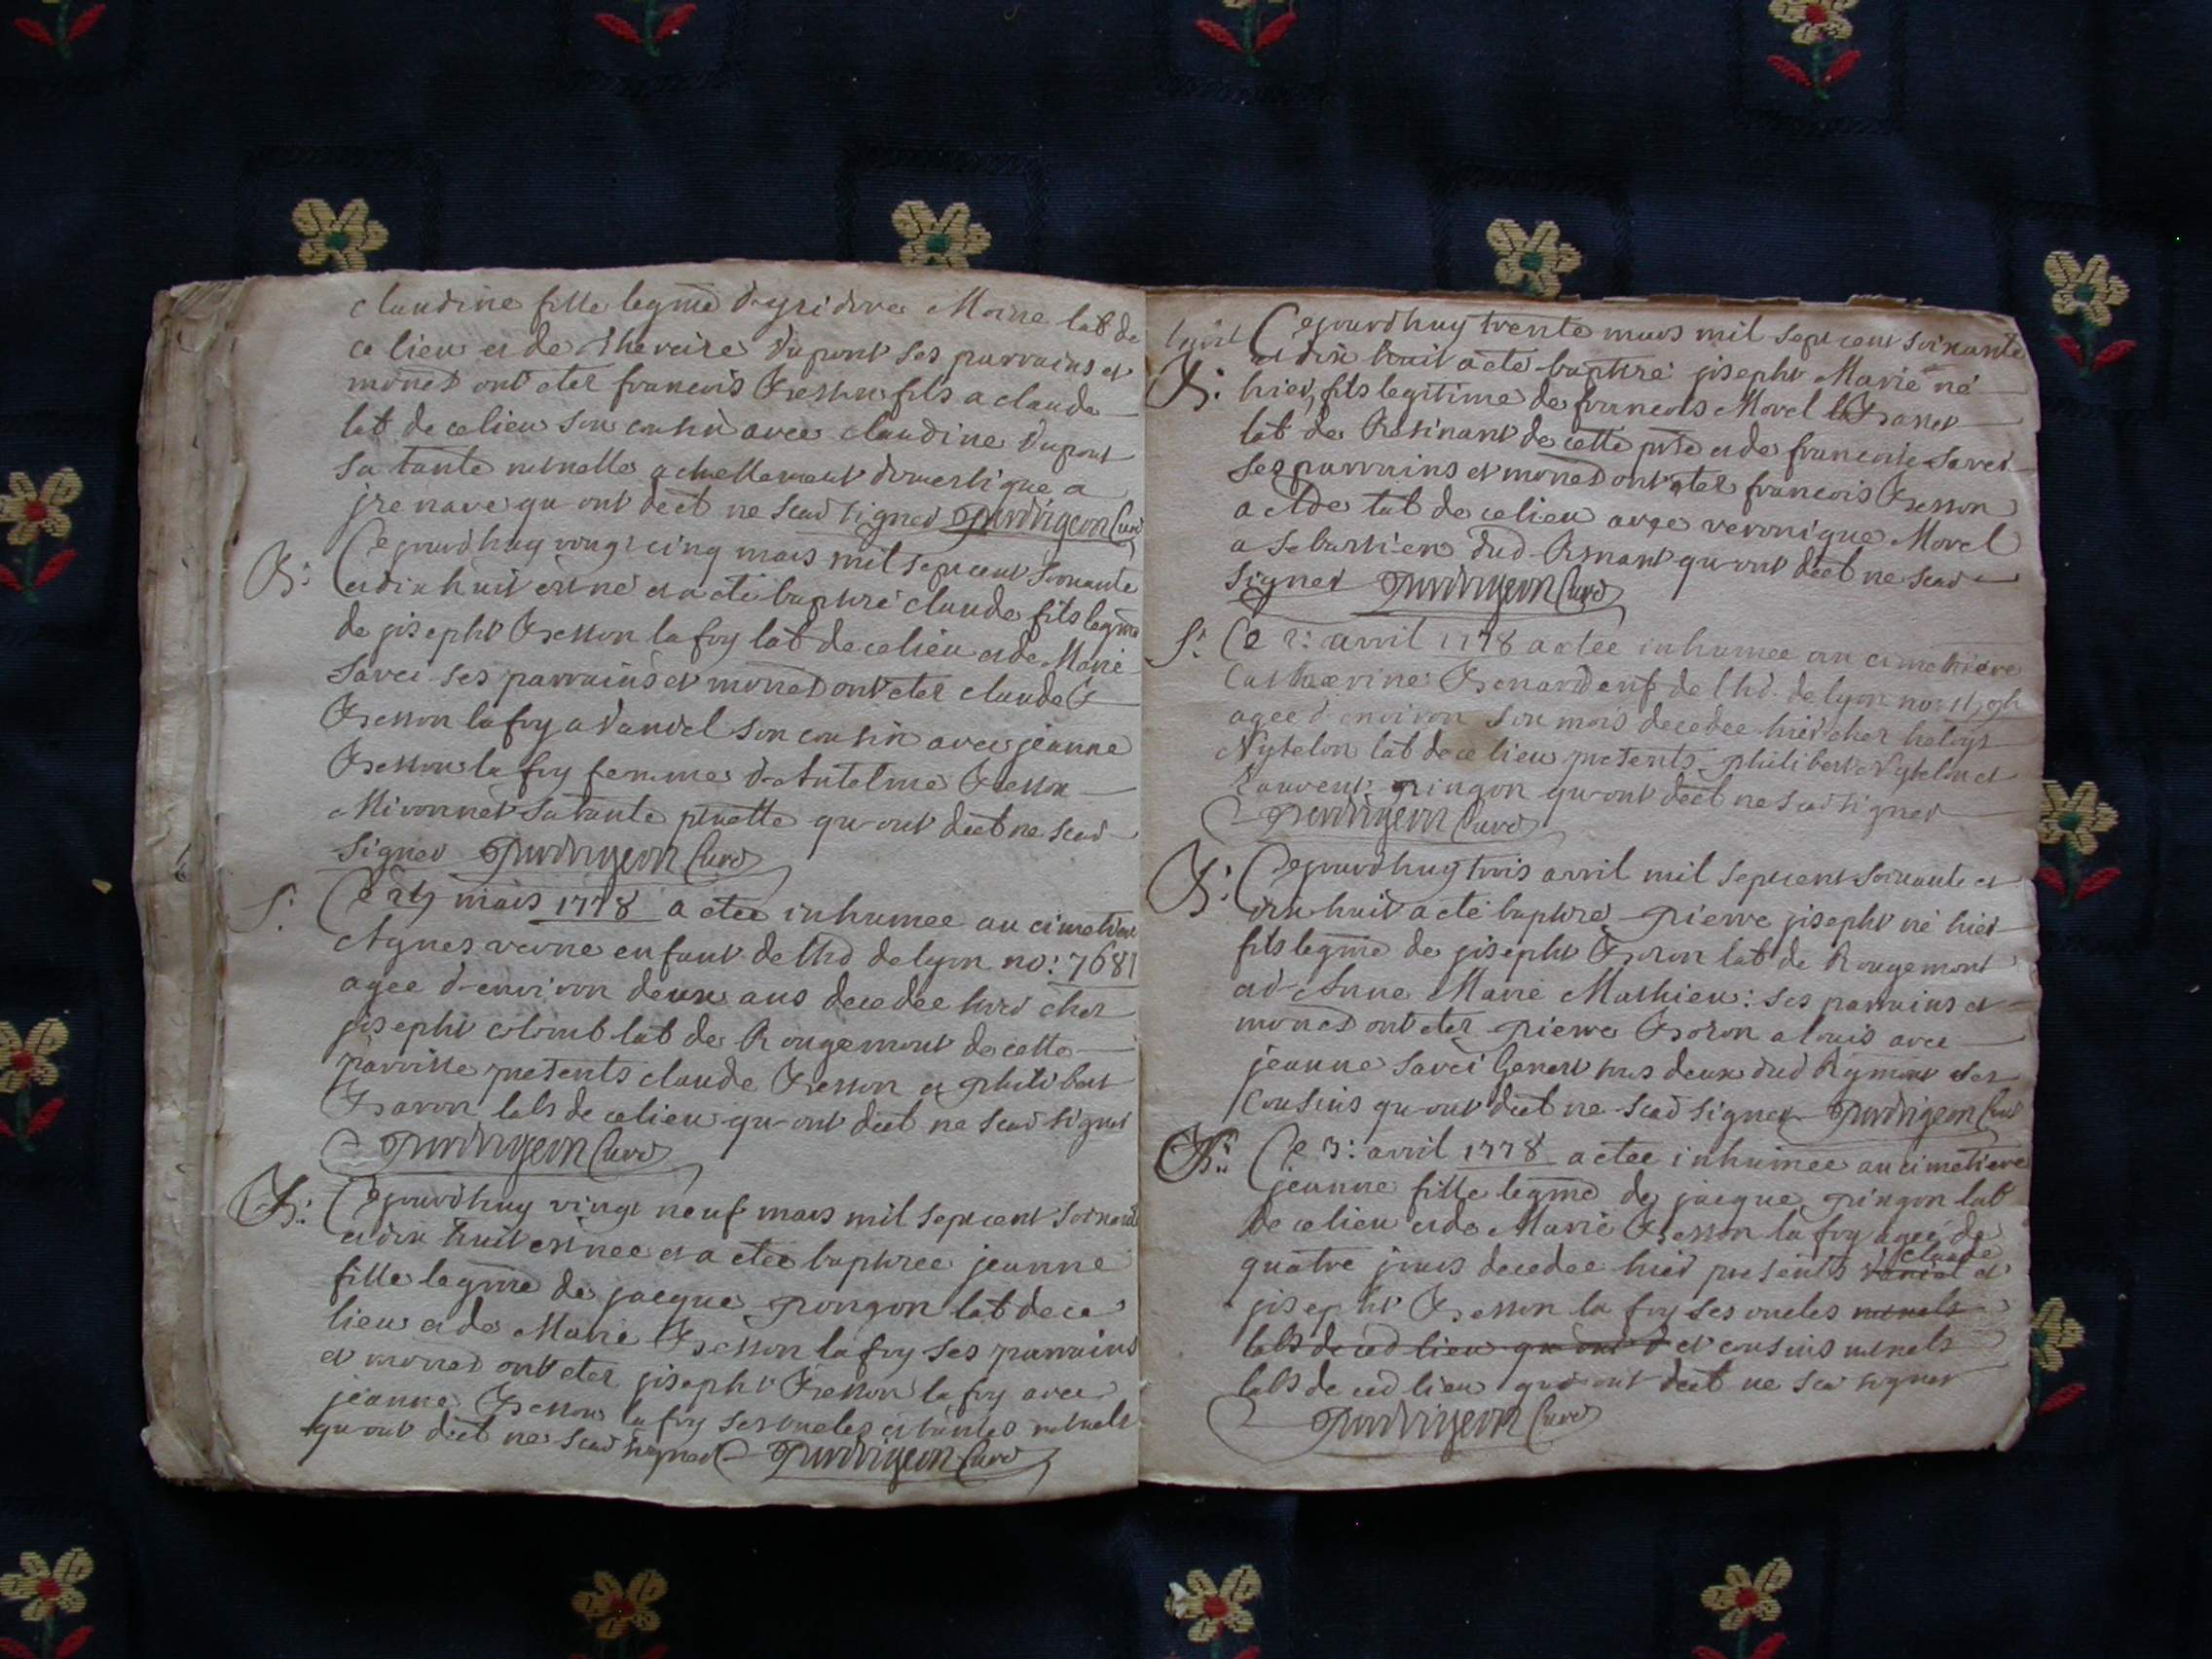 claudine fille legme d'ysidore Morre lab de
ce lieu et de therese dupont ses parrains et
mones ont eter francois Besson fils a claude
lab de ce lieu son cousin avec claudine dupont
sa tante actuellement domestique a
qu ont dect ne scav signer Purdrigeon Curé
B: Cejourdhuy vingt cinq mars mil sepcent soixante
et dix huit est né et a eté baptisé claude fils legme
de joseph Besson la foy lab de ce lieu et de Marie
Savei ses parrains et mones ont eter claude
Besson la foy a son cousin avec jeanne
Besson la foy femme d'Antelme Besson
Mivonnet sa tante qu ont dect ne scav
signer Purdrigeon Curé
S: Ce mars 1778 a etee inhumee au cimetiere
Agnes verne enfant de lhd de lyon no: 7681
agee d'environ deux ans decedee hier cher
joseph colomb lab de Rougemont de cette
parroisse presents claude Besson et philibert
Baron labs de ce lieu qu ont dect ne scav signer
Purdrigeon Curé
B: Cejourdhuy vingt neuf mars mil sepcent soixante
et dix huit est nee et a etee baptisee jeanne
fille legme de jacque pingon lab de ce
lieu et de Marie Besson la foy ses parrains
et mones ont eter joseph Besson la foy avec
jeanne Besson la foy ses oncles et tantes
qu ont dect ne scav signer Purdrigeon Curé
Cejourdhuy trente mars mil sepcent soixante
et dix huit a eté baptisé joseph Marie né
B: hier, fils legitime de francois Morel
lab de de cette prse et de francoise Savei
ses parrains et mones ont eter francois Besson
lab de ce lieu avec veronique Morel
a Sebastien dud qu ont dect ne scav
signer Purdrigeon Curé
S: Ce 2: avril 1778 a etee inhumee au cimetiere
Catherine Benard enf de lhd de lyon
agee d'environ son mois decedee hier cher
Nytelon lab de ce lieu presents philibert Nytelon et
Laurent pingon qu ont dect ne scav signer
Purdrigeon Curé
B: Cejourdhuy trois avril mil sepcent soixante et
dix huit a eté baptisé pierre joseph né hier
fils legme de joseph Boron lab de Rougemont
et d'Anne Marie Mathieu: ses parrains et
mones ont eter pierre Boron a louis avec
jeanne Savei tous deux dud ses
cousins qu ont dect ne scav signer Purdrigeon Curé
Ce 3: avril 1778 a etee inhumee au cimetiere
jeanne fille legme de jacque pingon lab
de ce lieu et de Marie Besson la foy agee de
quatre jours decedee hier presents claude et
joseph Besson la foy ses oncles
labs de ced lieu qu ont d et cousins
labs de ced lieu qui ont dect ne scav signer
Purdrigeon Curé